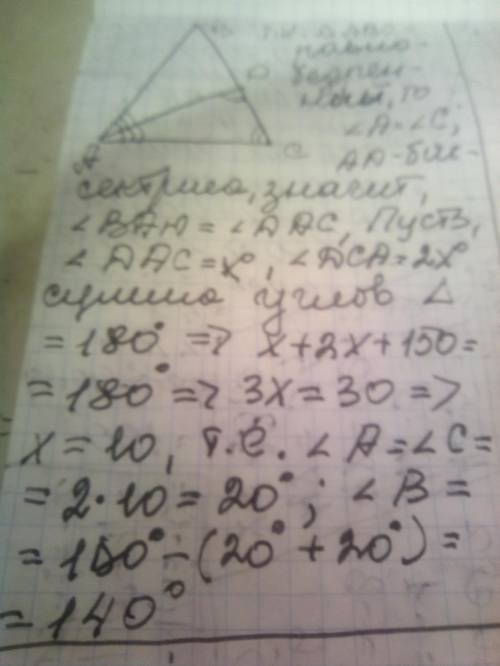 B Т.к. △ ABC
D равно-
бедрен-
ный, то
∠A=∠C,
A C AD-бис-
сектриса, значит,
∠BAD = ∠DAC, Пусть,
∠DAC=x°, ∠DCA=2x°
сумма углов △
=180° => x+2x+150=
=180° => 3x=30 =>
x=10, т.е. ∠A=∠C=
=2·10=20°; ∠B=
=180°-(20°+20°)=
=140°